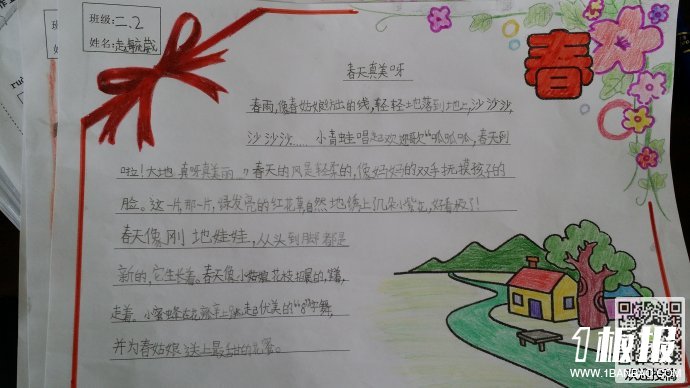 班级:二.2
姓名:
春天真美呀
春
春雨,像春姑娘纺出的线,轻轻地落到地上,沙沙沙,
沙沙沙……小青蛙唱起欢迎歌"呱呱呱,春天到
啦!大地真呀真美丽。"春天的风是轻柔的,像妈妈的双手抚摸孩子的
脸。这一片,那一片,绿发亮的红花草自然地绣上几朵小紫花,好看极了!
春天像刚 地娃娃,从头到脚都是
新的,它生长着。春天像小姑娘花枝招展的,笑着,
走着。小蜜蜂在花瓣上跳起优美的"8"字舞,
并为春姑娘送上最甜的花蜜。
1板报
WWW.1BANBAO.COM
欢迎投稿